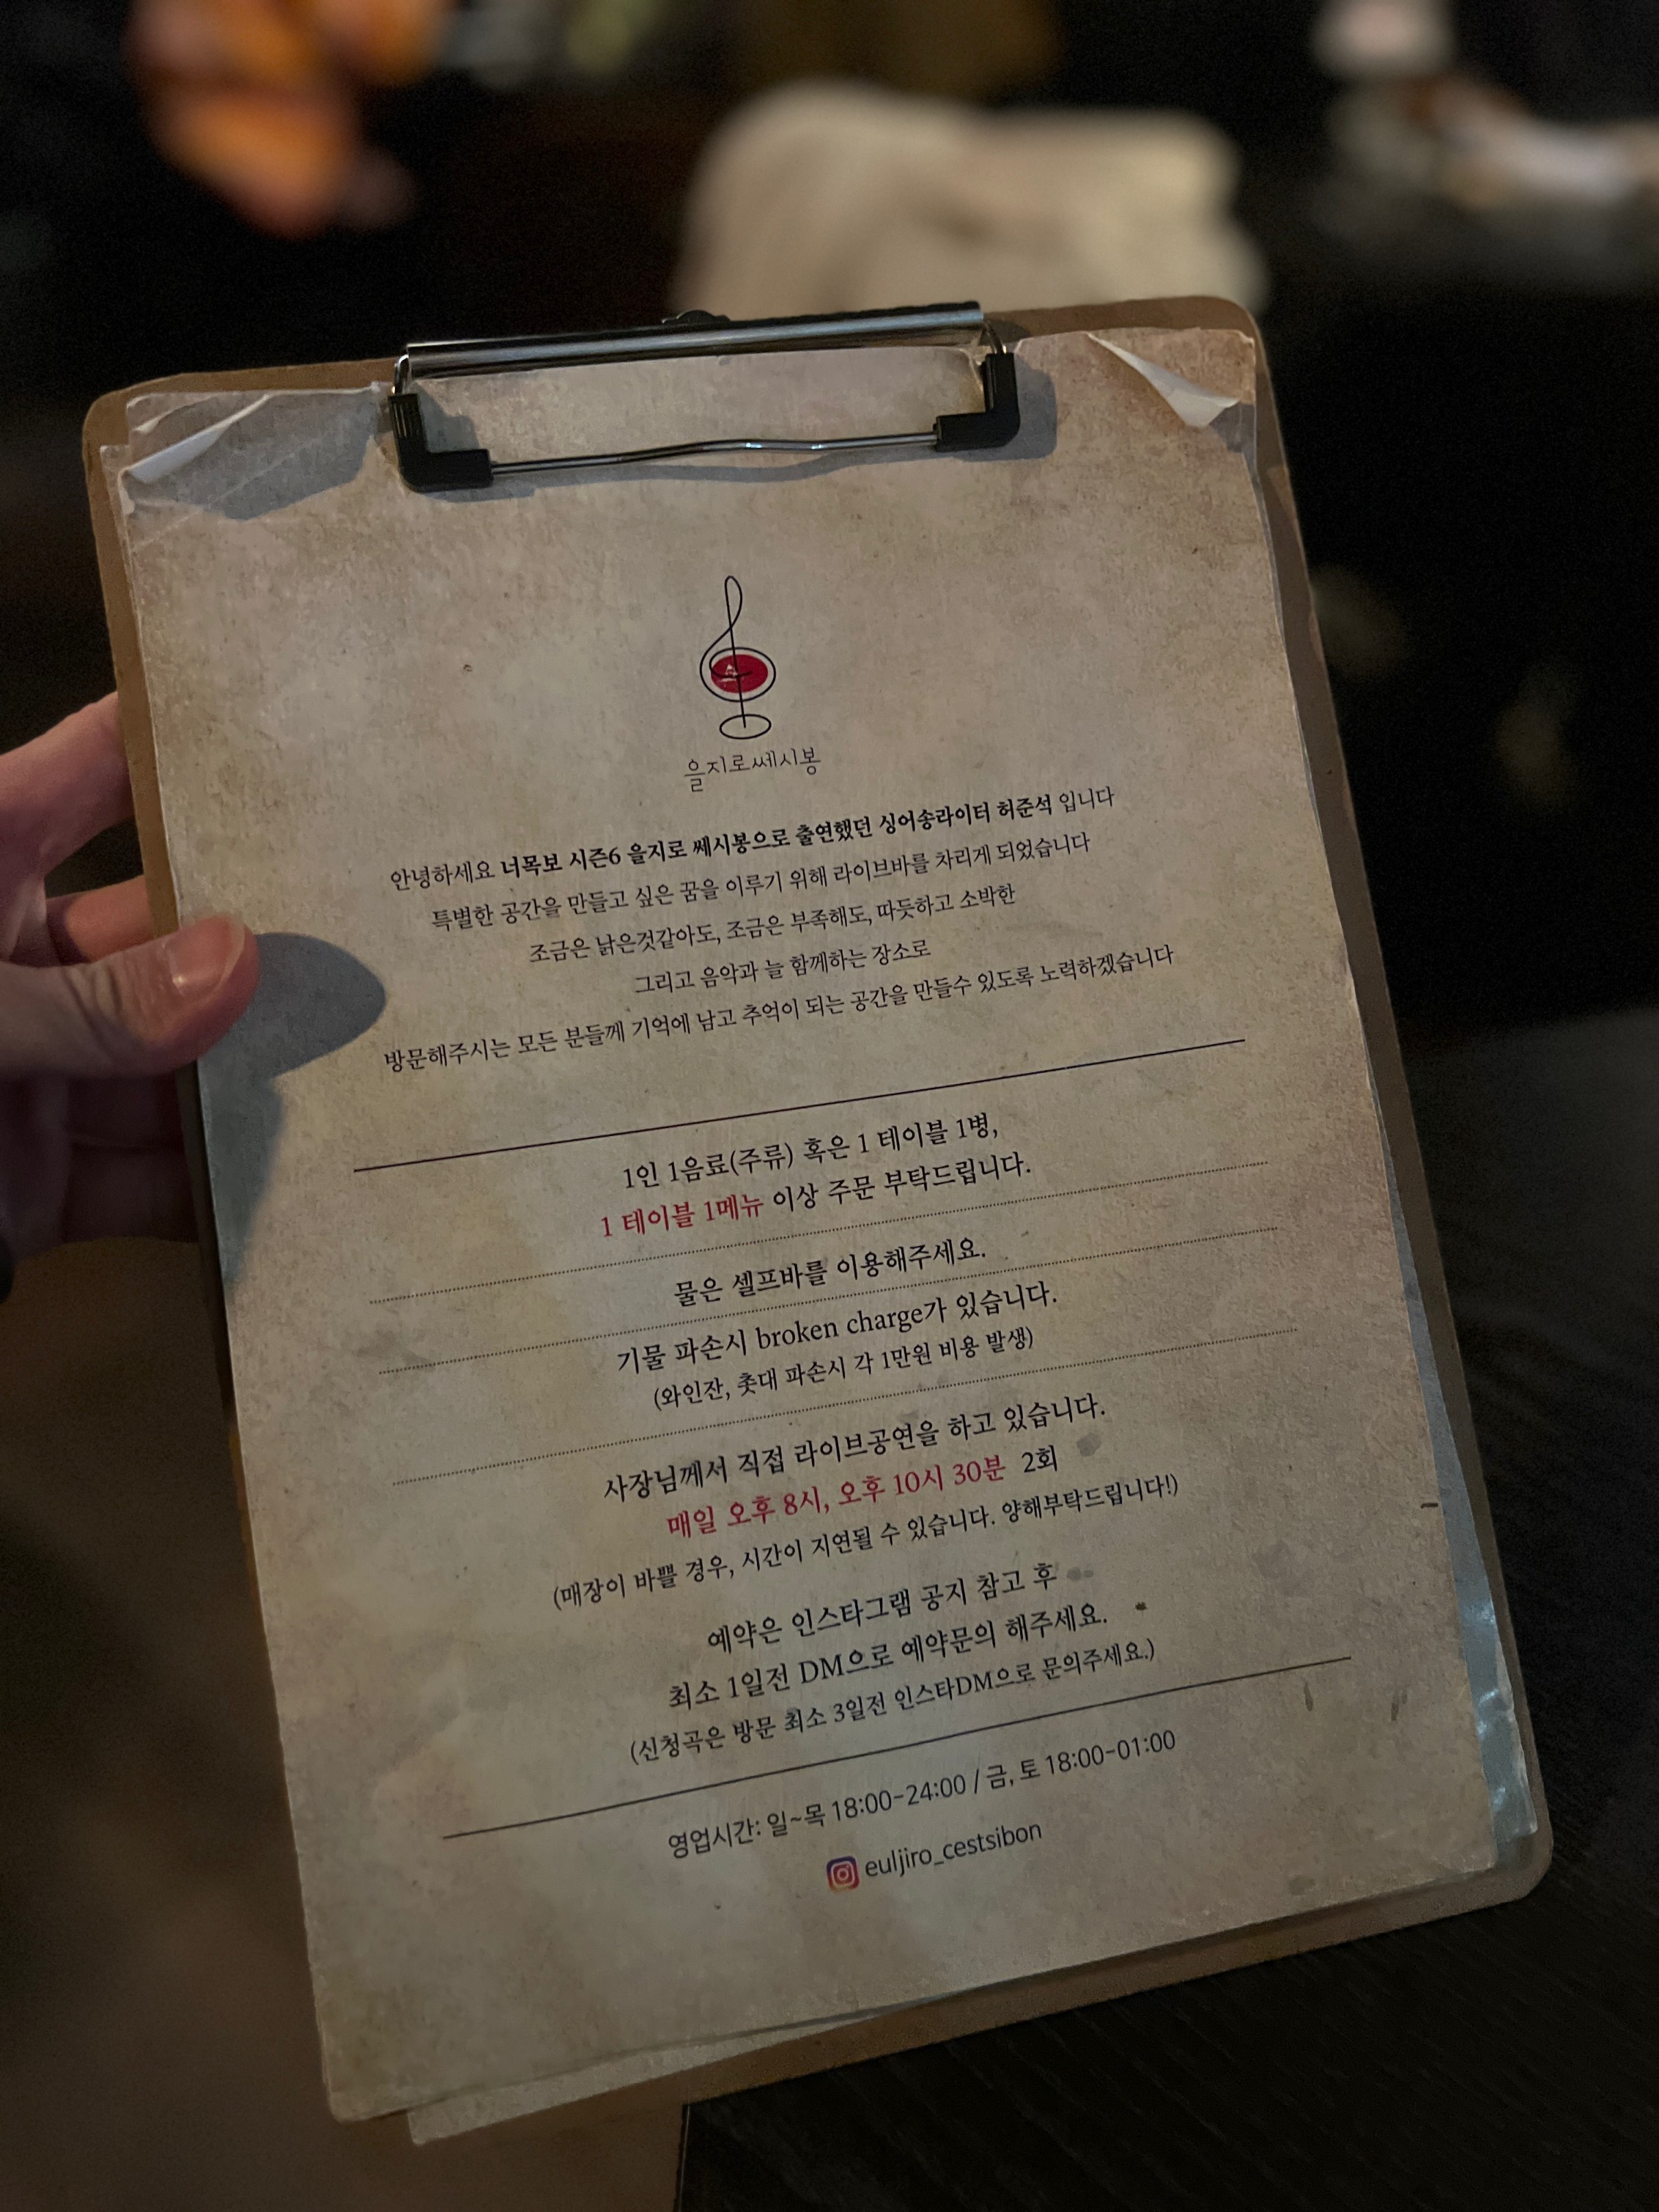 을지로쎄시봉
안녕하세요 너목보 시즌6 을지로 쎄시봉으로 출연했던 싱어송라이터 허준석 입니다
특별한 공간을 만들고 싶은 꿈을 이루기 위해 라이브바를 차리게 되었습니다
조금은 낡은것같아도, 조금은 부족해도, 따듯하고 소박한
그리고 음악과 늘 함께하는 장소로
방문해주시는 모든 분들께 기억에 남고 추억이 되는 공간을 만들수 있도록 노력하겠습니다
1인 1음료(주류) 혹은 1 테이블 1병,
1 테이블 1메뉴 이상 주문 부탁드립니다.
물은 셀프바를 이용해주세요.
기물 파손시 broken charge가 있습니다.
(와인잔, 촛대 파손시 각 1만원 비용 발생)
사장님께서 직접 라이브공연을 하고 있습니다.
매일 오후 8시, 오후 10시 30분 2회
(매장이 바쁠 경우, 시간이 지연될 수 있습니다. 양해부탁드립니다!)
예약은 인스타그램 공지 참고 후
최소 1일전 DM으로 예약문의 해주세요.
(신청곡은 방문 최소 3일전 인스타DM으로 문의주세요.)
영업시간: 일~목 18:00-24:00 / 금, 토 18:00-01:00
euljiro_cestsibon